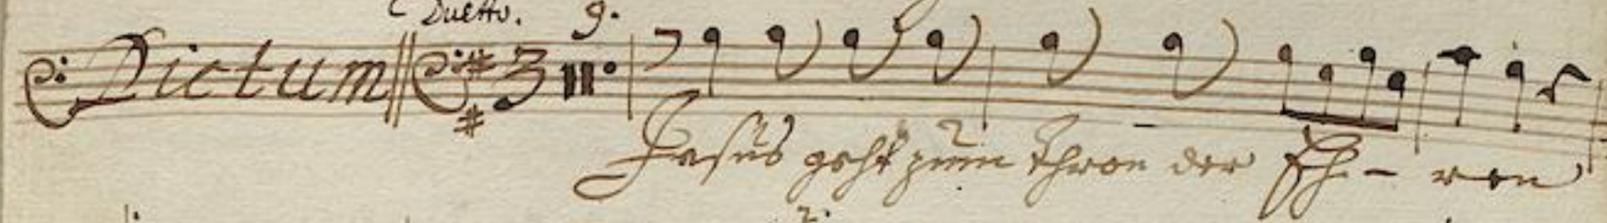 Duetto. 9.
Dictum 3
Jesus geht zum Thron der Eh- ren